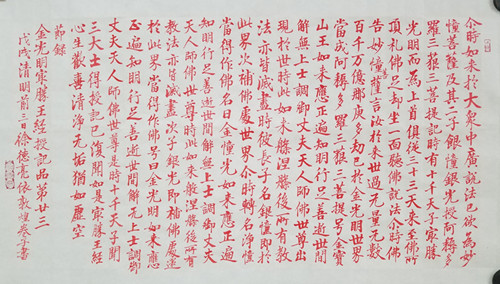 尒時如来於大衆中廣說法已欲為妙
幢菩薩及其二子銀幢銀光授阿耨多
羅三藐三菩提記時有十千天子最勝
光明而為上首俱從三十三天来至佛所
頂礼佛足却坐一面聽佛說法尒時佛
告妙幢菩薩言汝於来世過无量无數
百千万億那庾多劫已於金光明世界
當成阿耨多羅三藐三菩提号金寶
山王如来應正遍知明行足善逝世間
解無上士調御丈夫天人師佛世尊出
現於世時此如来般涅槃後所有教
法亦皆滅盡時彼長子名銀幢即於
此界次補佛處世界尒時轉名淨幢
當得作佛名曰金幢光如来應正遍
知明行足善逝世間解無上士調御丈夫
天人師佛世尊時此如来般涅槃後所有
教法亦皆滅盡次子銀光即補佛處還
於此界當得作佛号曰金光明如来應
正遍知明行足善逝世間解無上士調御
丈夫天人師佛世尊是時十千天子聞
三大士得授記已復聞如是最勝王經
心生歡喜清淨无垢猶如虛空
節録
金光明最勝王經授記品第廿三
戊戌清明前三日徐德亮依敦煌卷子書